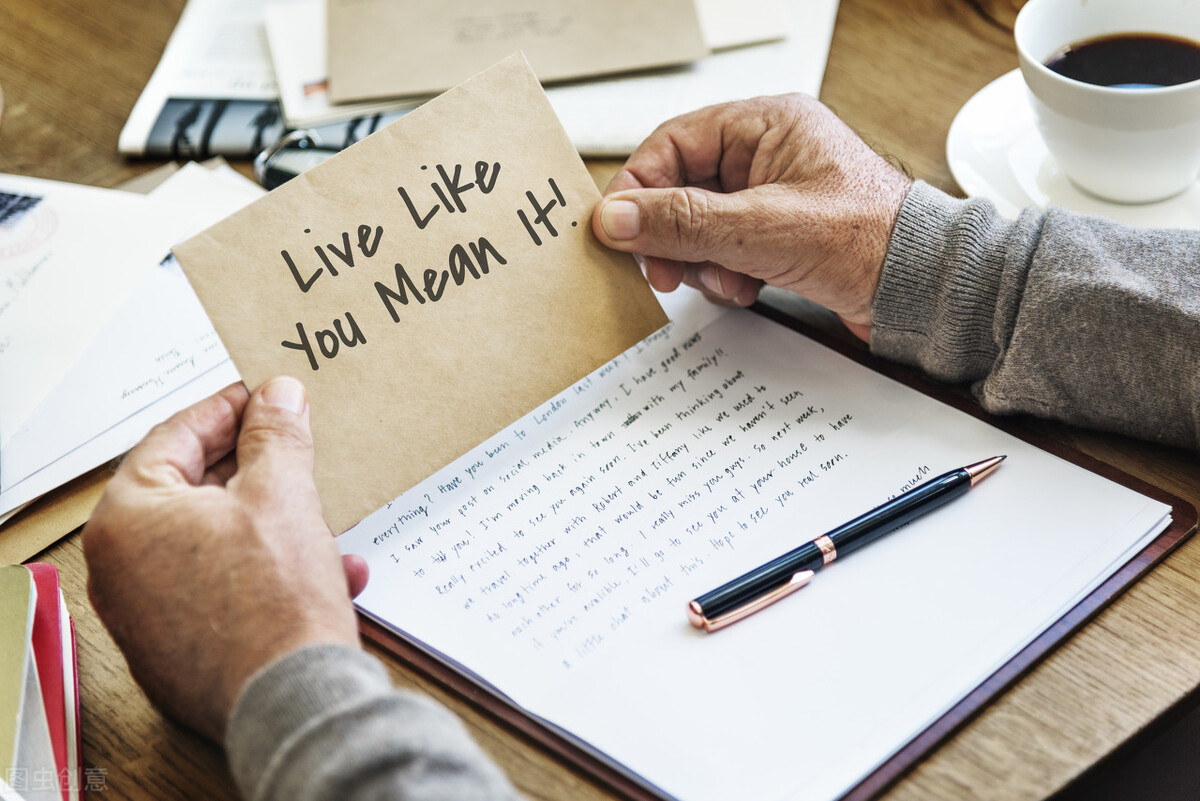 Live Like
You Mean It!
everything? Have you been to London last week? I though
I saw your post on social media. Anyway, I have good news
to tell you! I'm moving back in town with my family!!
Really excited to see you again soon. I've been thinking about
we travel together with Robert and Tiffany like we used to
do long time ago, that would be fun since we haven't seen
each other for so long. I really miss you guys. So next week,
if you're avalible, I'll go to see you at your house to have
a little chat about this. Hope to see you real soon.
so much
图虫创意